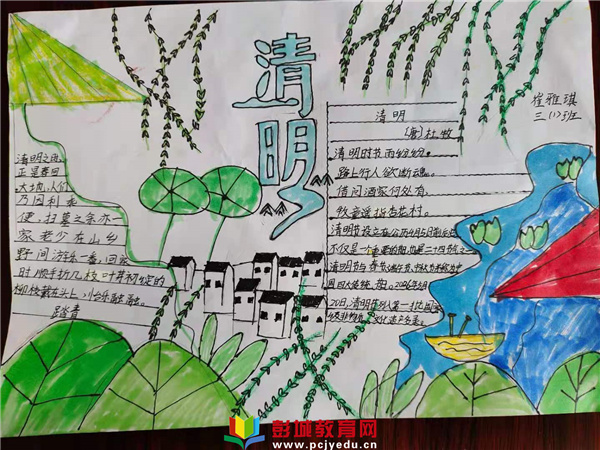 清明
清明之际,
正是春回
大地,人们
乃因利乘
便,扫墓之余亦
一家老少在山乡
野间游乐一番,回家
时顺手折几枝叶芽初绽的
柳枝戴在头上,其乐融融。
踏青
崔雅琪
三(1)班
清明
(唐)杜牧
清明时节雨纷纷。
路上行人欲断魂。
借问酒家何处有。
牧童遥指杏花村。
清明节
不仅是一个重要的
清明节与春节、端午节、中秋节并称为中
国四大传统节日。2006年5月
20日,清明节列入第一批国家
级非物质文化遗产名录。
彭城教育网
www.pcjyedu.cn